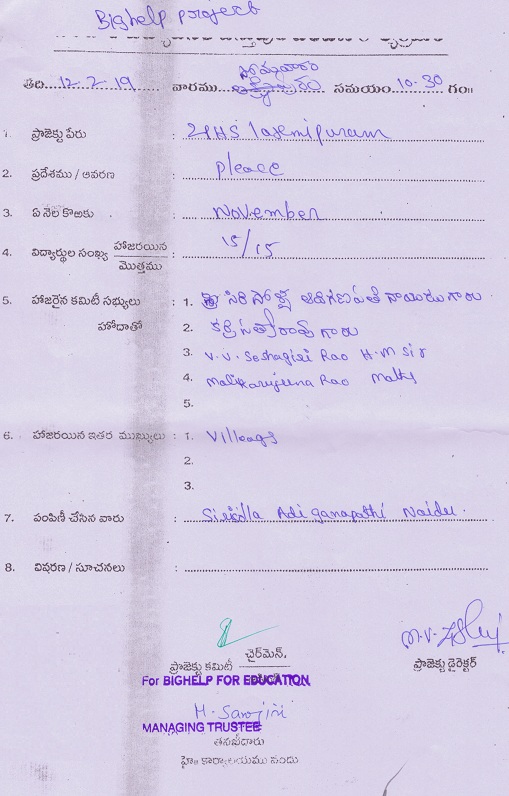 Bighelp project
తేది 12.2.19 వారము సోమవారం సమయం 10.30 గం॥
1. ప్రాజెక్టు పేరు : ZPHS laxmipuram
2. ప్రదేశము / ఆవరణ : pleace
3. ఏ నెల కొఱకు : November
4. విద్యార్థుల సంఖ్య హాజరయిన / మొత్తము : 15/15
5. హాజరైన కమిటీ సభ్యులు : 1. ఆదిగణపతి నాయుడు గారు
హోదాతో 2. గారు
3. V.V. Seshagiri Rao H.M Sir
4. Malikarujuna Rao Maths
5.
6. హాజరయిన ఇతర ముఖ్యులు : 1. Villeags
2.
3.
7. పంపిణీ చేసిన వారు : Adi ganapathi Naidu.
8. వివరణ / సూచనలు :
ప్రాజెక్టు కమిటీ చైర్‌మెన్.
ప్రాజెక్టు డైరెక్టర్
For BIGHELP FOR EDUCATION
H. Sarojini
MANAGING TRUSTEE
తనిఖీదారు
హెడ్ కార్యాలయము నందు